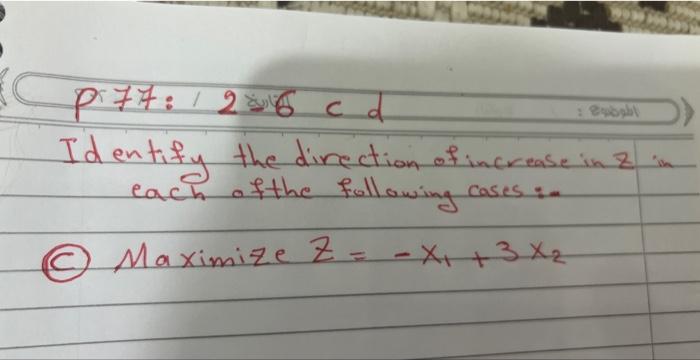 P 77: 2-6 c d
Identify the direction of increase in Z in
each of the following cases :-
Ⓒ Maximize Z = -X₁ + 3 X₂